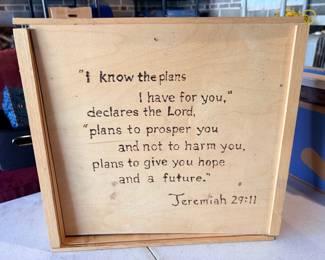 "I know the plans
I have for you,"
declares the Lord,
"plans to prosper you
and not to harm you,
plans to give you hope
and a future."
Jeremiah 29:11